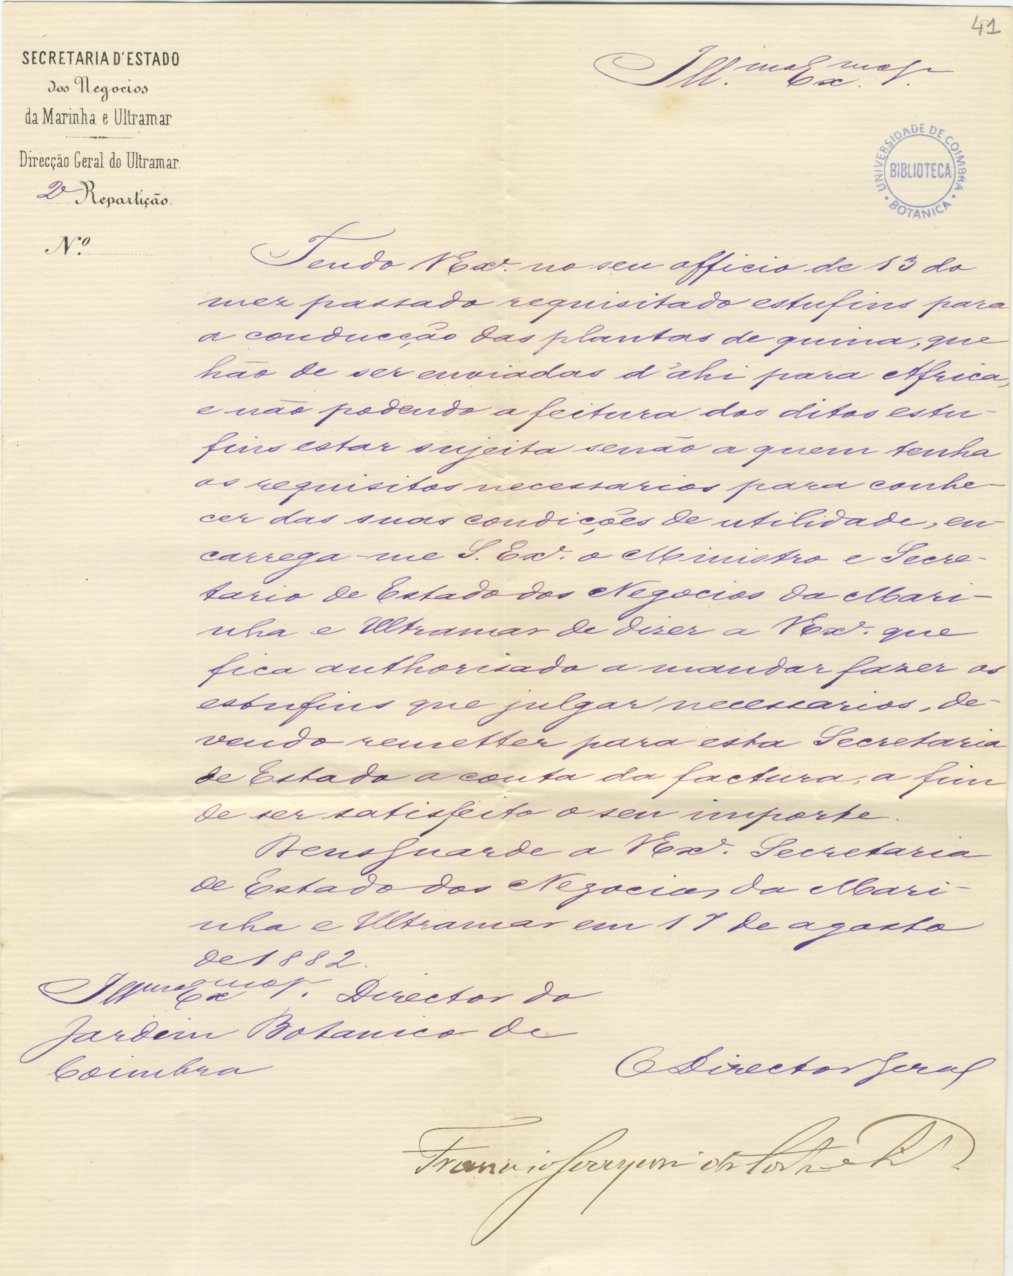 41
SECRETARIA D'ESTADO
dos Negocios
da Marinha e Ultramar
Direcção Geral do Ultramar.
2ª Repartição.
N.º
Ill.mo Ex.mo Sr.
UNIVERSIDADE DE COIMBRA
BIBLIOTECA
BOTANICA
Tendo V Ex.ª no seu officio de 13 do
mez passado requisitado estufins para
a conducção das plantas de quina, que
hão de ser enviadas d'ahi para Africa,
e não podendo a feitura dos ditos estu-
fins estar sujeita senão a quem tenha
os requisitos necessarios para conhe-
cer das suas condições de utilidade, en-
carrega-me S. Ex.ª o Ministro e Secre-
tario de Estado dos Negocios da Mari-
nha e Ultramar de dizer a V Ex.ª que
fica authorisado a mandar fazer os
estufins que julgar necessarios, de-
vendo remetter para esta Secretaria
de Estado a conta da factura, a fim
de ser satisfeito o seu importe.
Deus Guarde a V Ex.ª Secretaria
de Estado dos Negocios da Mari-
nha e Ultramar em 17 de agosto
de 1882.
Ill.mo Ex.mo Sr. Director do
Jardim Botanico de
Coimbra
O Director Geral
Francisco da Costa e